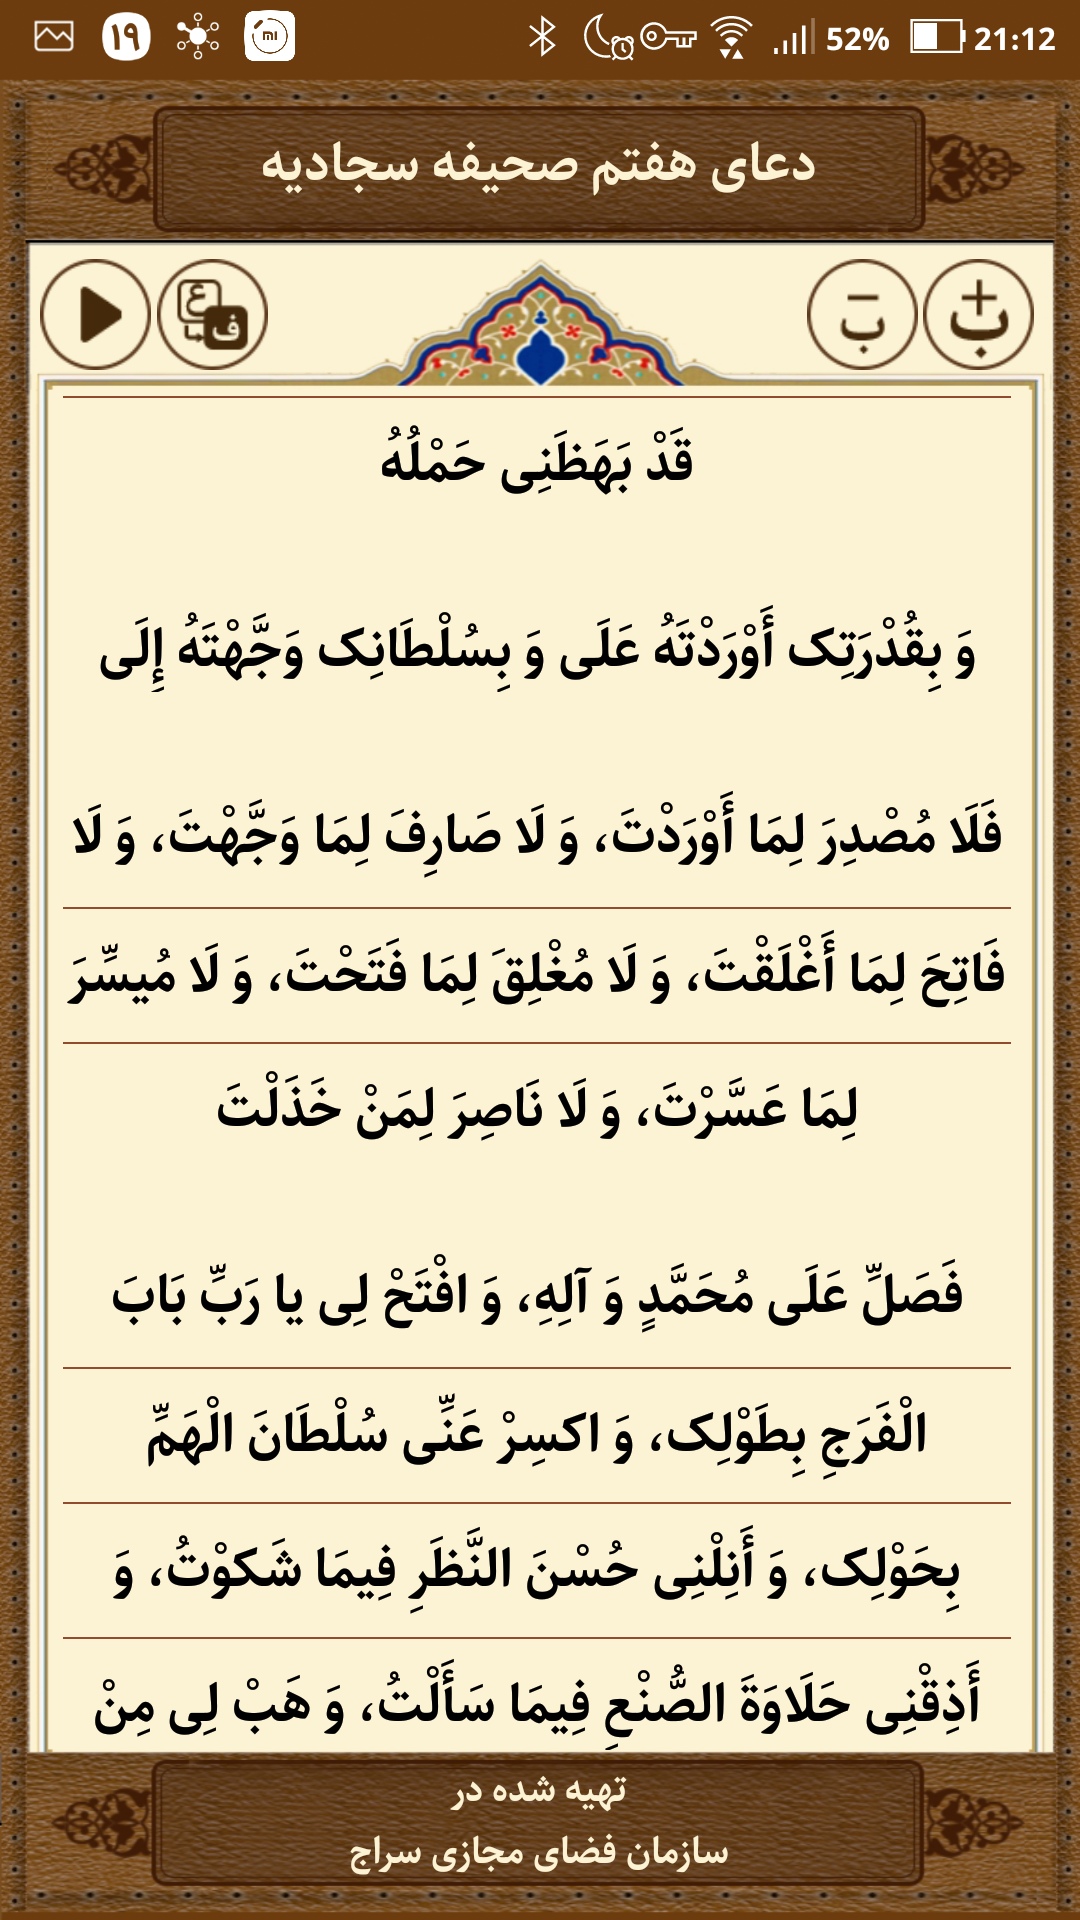 ۱۹
mi
52%
21:12
دعای هفتم صحیفه سجادیه
ع
ف
ب
ب
قَدْ بَهَظَنِی حَمْلُهُ
وَ بِقُدْرَتِک أَوْرَدْتَهُ عَلَی وَ بِسُلْطَانِک وَجَّهْتَهُ إِلَی
فَلَا مُصْدِرَ لِمَا أَوْرَدْتَ، وَ لَا صَارِفَ لِمَا وَجَّهْتَ، وَ لَا
فَاتِحَ لِمَا أَغْلَقْتَ، وَ لَا مُغْلِقَ لِمَا فَتَحْتَ، وَ لَا مُیسِّرَ
لِمَا عَسَّرْتَ، وَ لَا نَاصِرَ لِمَنْ خَذَلْتَ
فَصَلِّ عَلَی مُحَمَّدٍ وَ آلِهِ، وَ افْتَحْ لِی یا رَبِّ بَابَ
الْفَرَجِ بِطَوْلِک، وَ اکسِرْ عَنِّی سُلْطَانَ الْهَمِّ
بِحَوْلِک، وَ أَنِلْنِی حُسْنَ النَّظَرِ فِیمَا شَکوْتُ، وَ
أَذِقْنِی حَلَاوَةَ الصُّنْعِ فِیمَا سَأَلْتُ، وَ هَبْ لِی مِنْ
تهیه شده در
سازمان فضای مجازی سراج